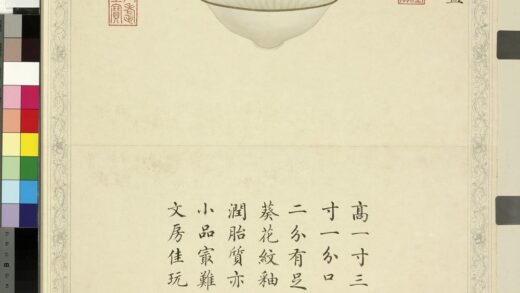 髙一寸三
寸一分口
二分有足
葵花紋釉
潤胎質亦
小品㝡難
文房佳玩